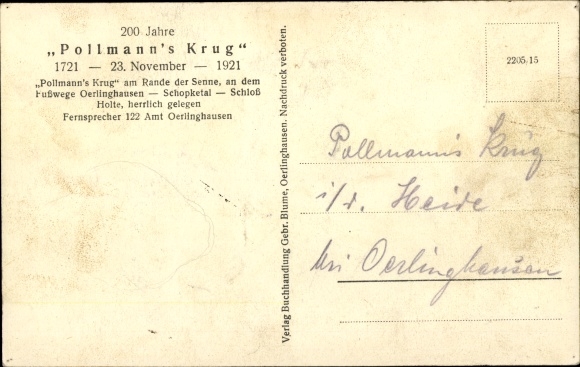 200 Jahre
„Pollmann's Krug"
1721 — 23. November — 1921
„Pollmann's Krug" am Rande der Senne, an dem
Fußwege Oerlinghausen — Schopketal — Schloß
Holte, herrlich gelegen
Fernsprecher 122 Amt Oerlinghausen
Verlag Buchhandlung Gebr. Blume, Oerlinghausen. Nachdruck verboten.
2205 15
Pollmanns Krug
i/d. Heide
bei Oerlinghausen